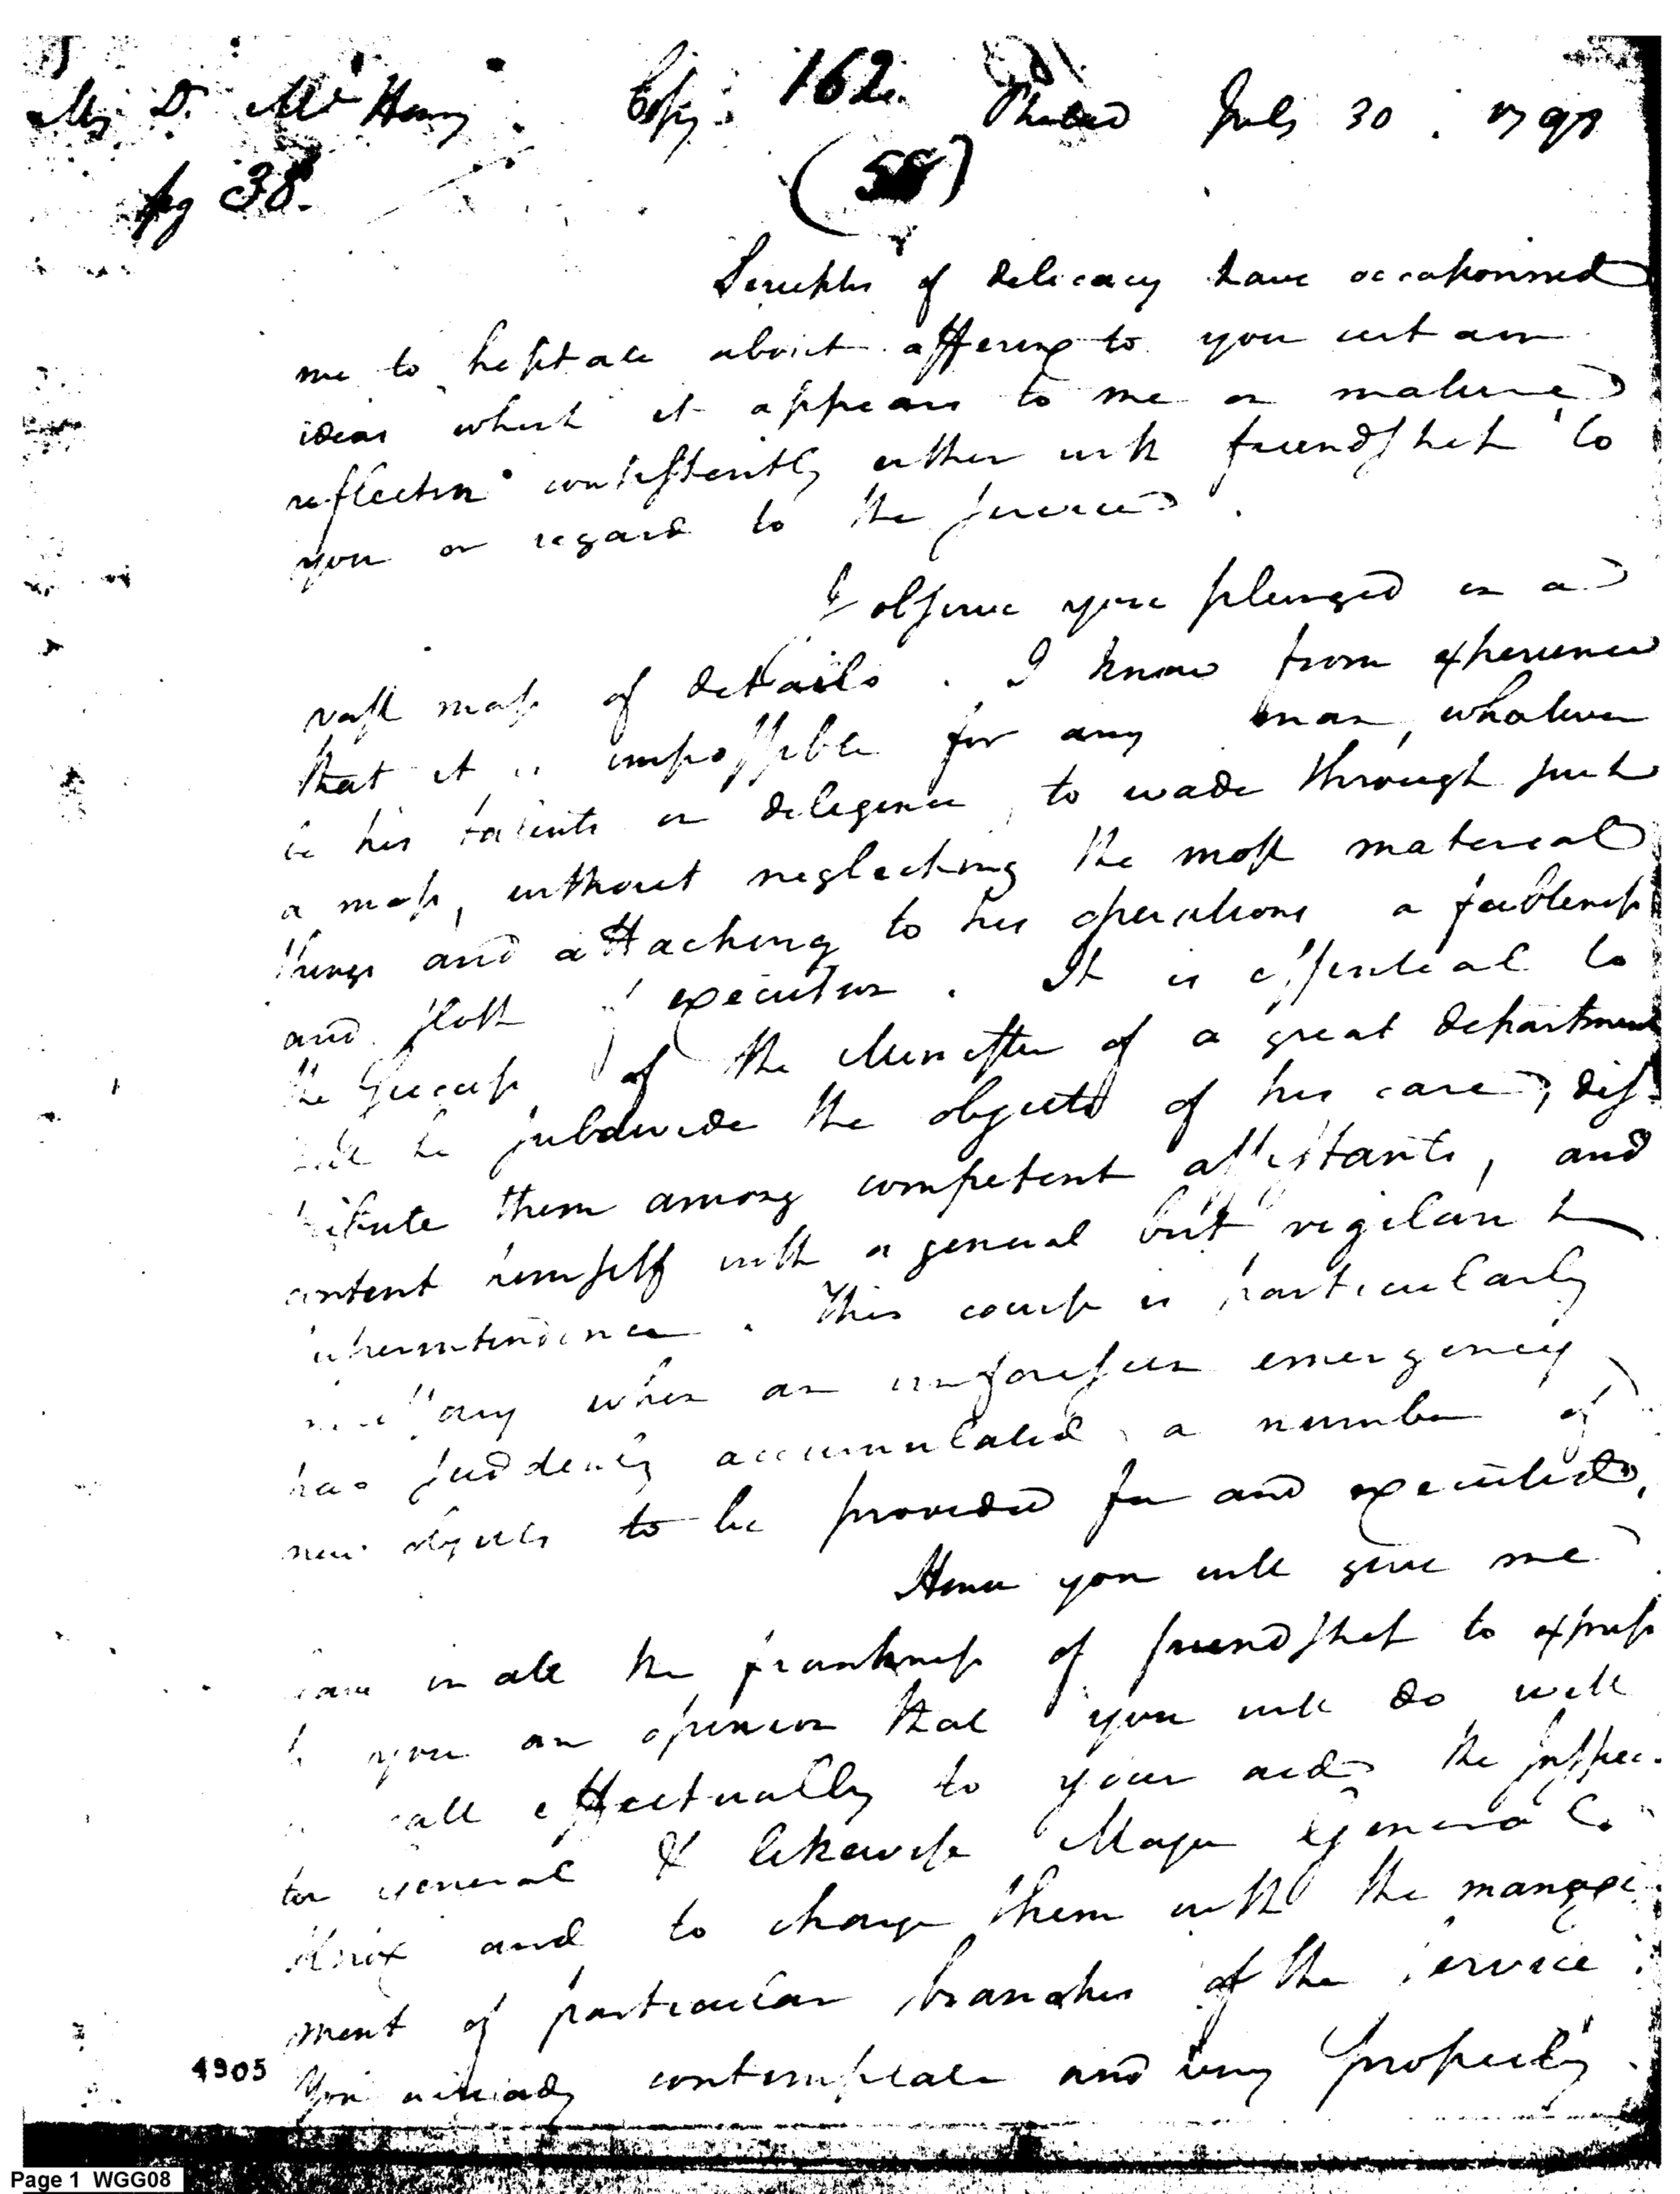 My D. Mc Henry Copy 162. Philad July 30. 1798
pg 38.
(58)
Scruples of delicacy have occasionned
me to hesitate about offering to you certain
ideas which it appears to me on mature
reflection consistently either with friendship to
you or regard to the service.
I observe you plunged in a
vast mass of details. I know from experience
that it is impossible for any man, whatever
be his talents or diligence, to wade through such
a mass, without neglecting the most material
things and attaching to his operations a feebleness
and sloth of execution. It is essential to
the success of the Minister of a great department
that he subdivide the objects of his care, dis-
tribute them among competent assistants, and
content himself with a general but vigilant
superintendence. This course is particularly
necessary when an unforeseen emergency
has suddenly accumulated a number of
new objects to be provided for and executed.
Hence you will give me
leave in all the frankness of friendship to express
to you an opinion that you will do well
to call effectually to your aid the Inspec-
tor General & likewise Major General
Knox and to charge them with the manage-
ment of particular branches of the service.
You already contemplate and very properly
4905
Page 1 WGG08